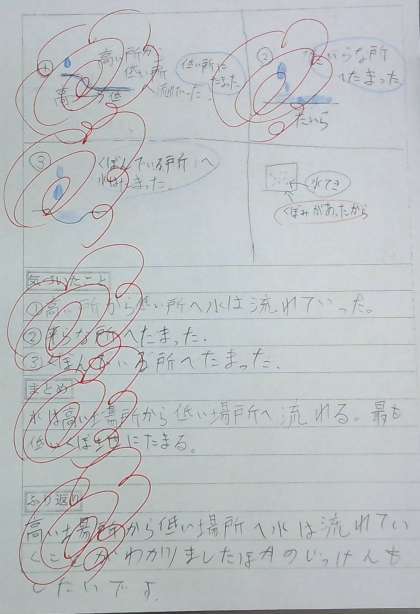 ①
高い所から
低い所
へ流れていった。
高
低
低い所にたまった
②
たいらな所
へたまった。
たいら
③
くぼんでいる所へ
水はたまった。
水てき
くぼみがあったから
気づいたこと
①高い所から低い所へ水は流れていった。
②平らな所へたまった。
③くぼんでいる所へたまった。
まとめ
水は高い場所から低い場所へ流れる。最も
低いくぼ地にたまる。
ふり返り
高い場所から低い場所へ水は流れてい
くことがわかりましたほかのじっけんも
したいです。